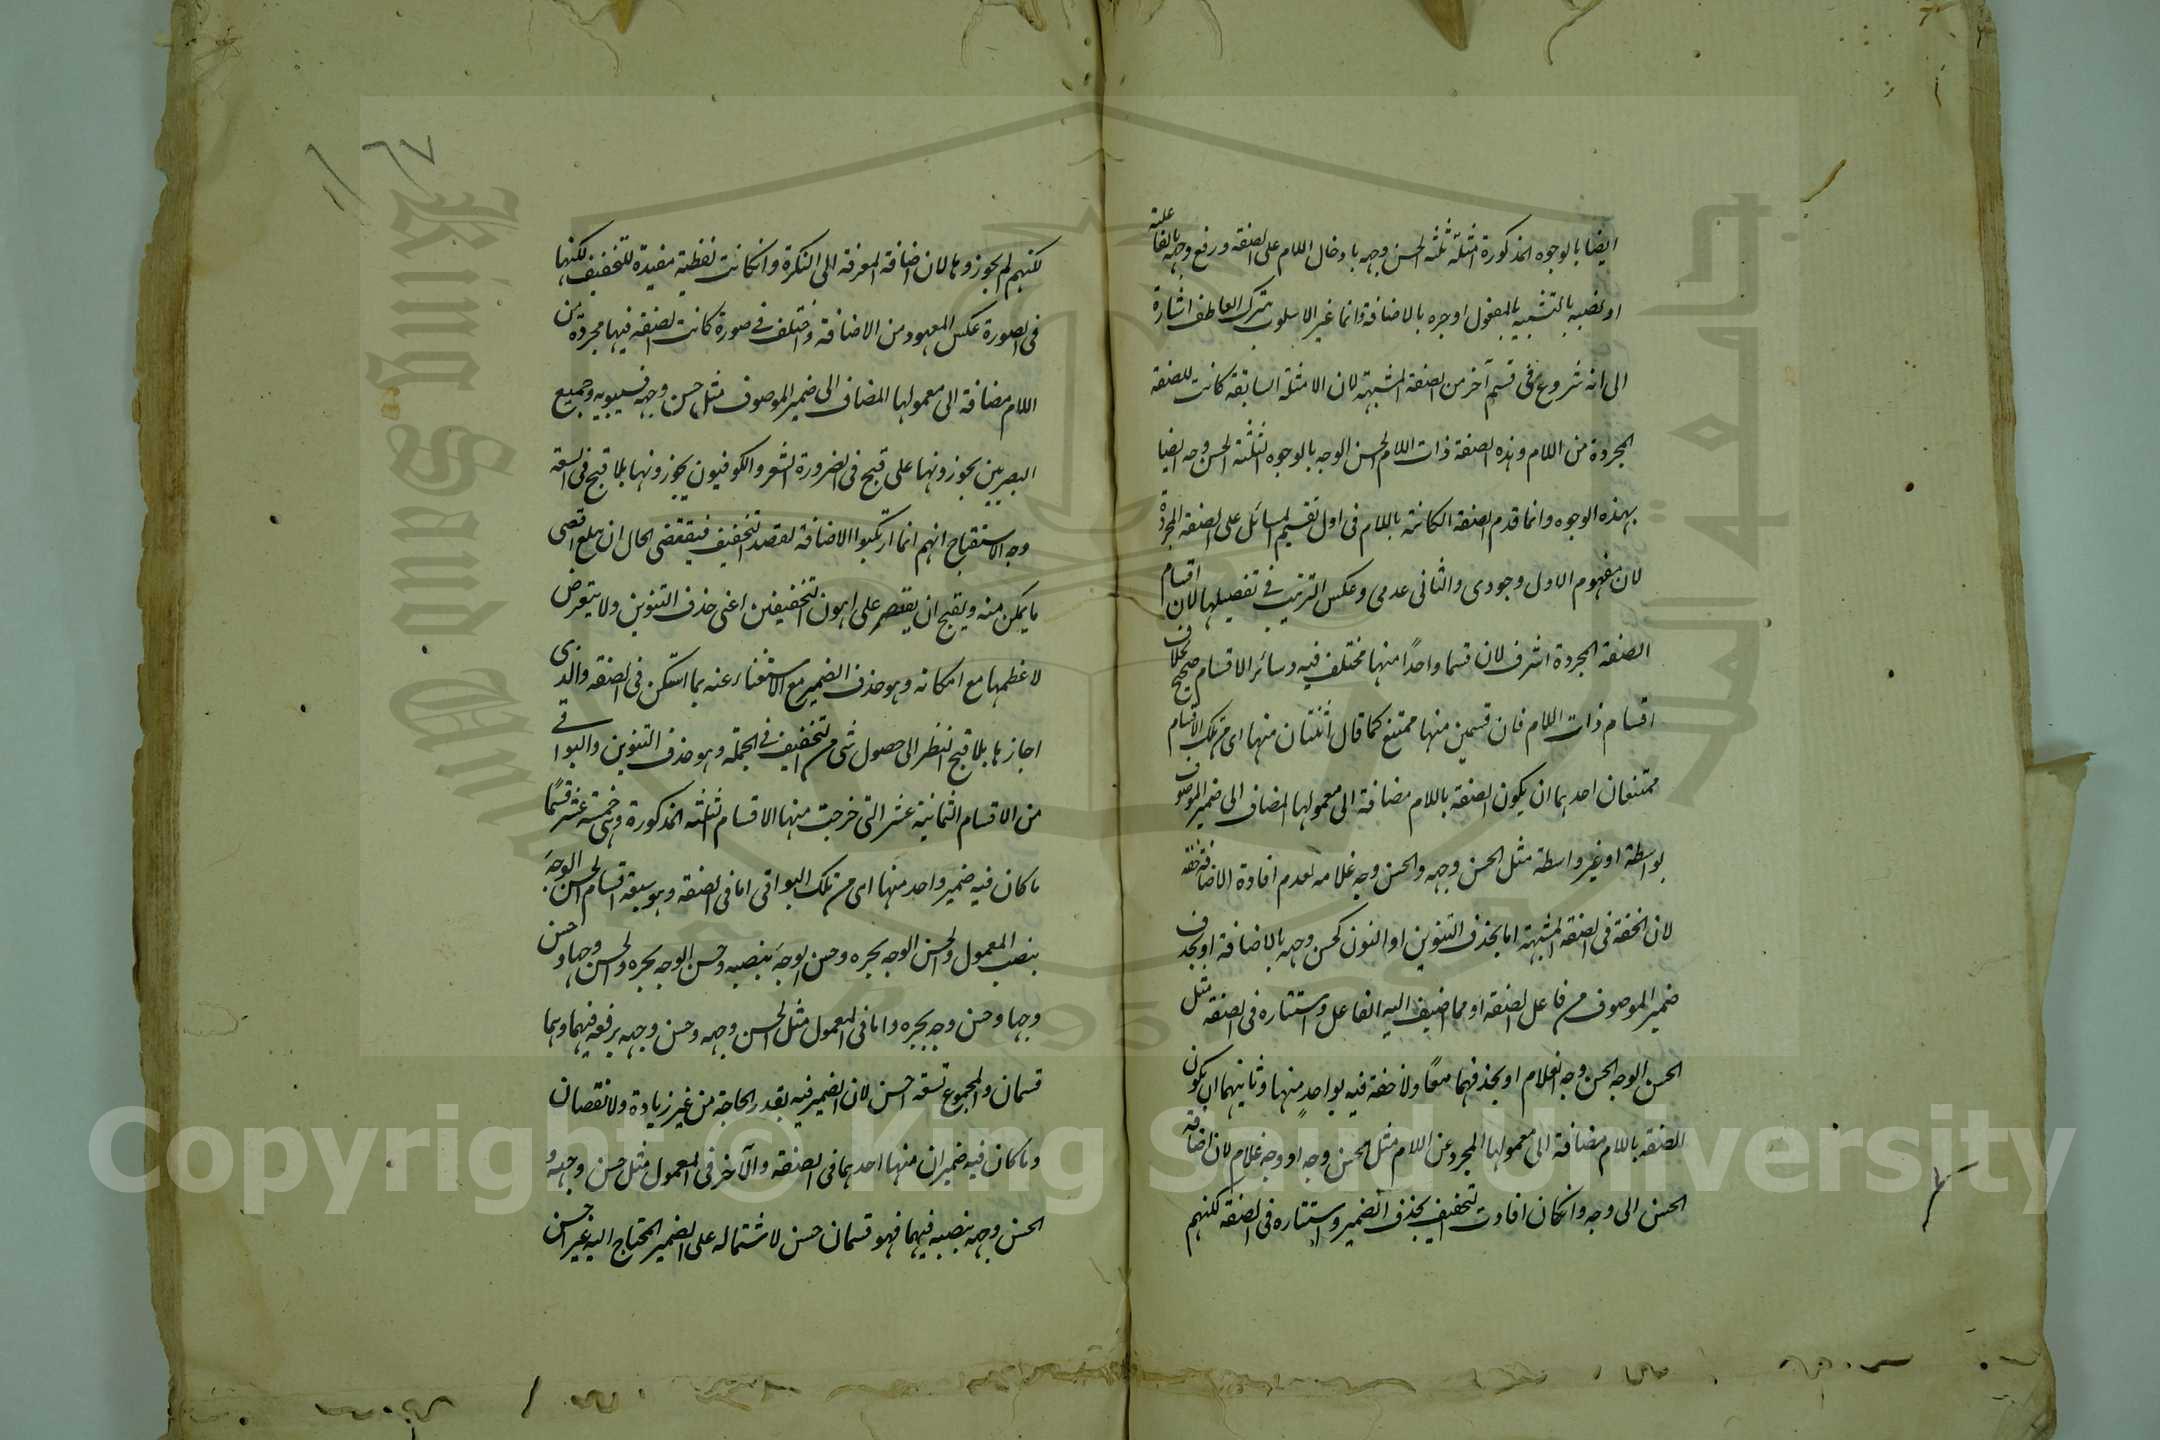 ايضا بالوجوه المذكورة امثلة ثلثة الحسن وجهه بادخال اللام على الصفة ورفع وجهه بالفاعلية
او نصبه بالتشبيه بالمفعول او جره بالاضافة وانما غير الاسلوب بترك العاطف اشارة
الى انه شروع فى قسم آخر من الصفة المشبهة لان الامثلة السابقة كانت للصفة
المجردة من اللام وهذه الصفة ذات اللام الحسن الوجه بالوجوه الثلثة الحسن وجه ايضا
بهذه الوجوه وانما قدم الصفة الكائنة باللام فى اول تقسيم المسائل على الصفة المجردة
لان مفهوم الاول وجودى والثانى عدمى وعكس الترتيب فى تفصيلها لان اقسام
الصفة المجردة اشرف لان قسما واحدًا منها مختلف فيه وسائر الاقسام صحيح بخلاف
اقسام ذات اللام فان قسمين منها ممتنع كما قال اثنتان منها اى من تلك الاقسام
ممتنعان احدهما ان يكون الصفة باللام مضافة الى معمولها المضاف الى ضمير الموصوف
بواسطة او غير واسطة مثل الحسن وجهه والحسن وجه غلامه لعدم افادة الاضافة خفة
لان الخفة فى الصفة المشبهة اما بحذف التنوين او النون كحسن وجهه بالاضافة او بحذف
ضمير الموصوف من فاعل الصفة او مما اضيف اليه الفاعل واستتاره فى الصفة مثل
الحسن الوجه الحسن وجه الغلام او بحذفهما معًا ولا خفة فيه بواحدٍ منها وثانيهما ان يكون
الصفة باللام مضافة الى معمولها المجرد عن اللام مثل الحسن وجه او وجه غلام لان اضافة
الحسن الى وجه وان كان افادت التخفيف بحذف الضمير واستتاره فى الصفة لكنهم
١٦٧
لكنهم لم يجوزوها لان اضافة المعرفة الى النكرة وان كانت لفظية مفيدة للتخفيف لكنها
فى الصورة عكس المعهود من الاضافة واختلف فى صورة كانت الصفة فيها مجردة عن
اللام مضافة الى معمولها المضاف الى ضمير الموصوف مثل حسن وجهه فسيبويه وجميع
البصريين يجوزونها على قبح فى ضرورة الشعر والكوفيون يجوزونها بلا قبح فى السعة
وجه الاستقباح انهم انما ارتكبوا الاضافة لقصد التخفيف فيقتضى الحال ان يبلغ اقصى
ما يمكن منه ويقبح ان يقتصر على اهون التخفيفين اعنى حذف التنوين ولا يتعرض
لاعظمها مع امكانه وهو حذف الضمير مع الاستغناء عنه بما استكن فى الصفة والذى
اجازها بلا قبح نظر الى حصول شى من التخفيف فى الجملة وهو حذف التنوين والبواقى
من الاقسام الثمانية عشر التى خرجت منها الاقسام الثلثة المذكورة وهى خمسة عشر قسمًا
ما كان فيه ضمير واحد منها اى من تلك البواقى اما فى الصفة وهو سبعة اقسام الحسن الوجهَ
بنصب المعمول والحسن الوجه بجره وحسن الوجهَ بنصبه وحسن الوجه بجره والحسن وجها وحسن
وجها وحسن وجه بجره واما فى المعمول مثل الحسن وجهه وحسن وجهه برفعه فيهما وهما
قسمان والمجموع تسعة احسن لان الضمير فيه بقدر الحاجة من غير زيادة ولا نقصان
وما كان فيه ضميران منها احدهما فى الصفة والآخر فى المعمول مثل حسن وجهه و
الحسن وجهه بنصبه فيهما فهو قسمان حسن لاشتماله على الضمير المحتاج اليه غير احسن
King Saud University
جامعة الملك سعود
1957
Copyright © King Saud University